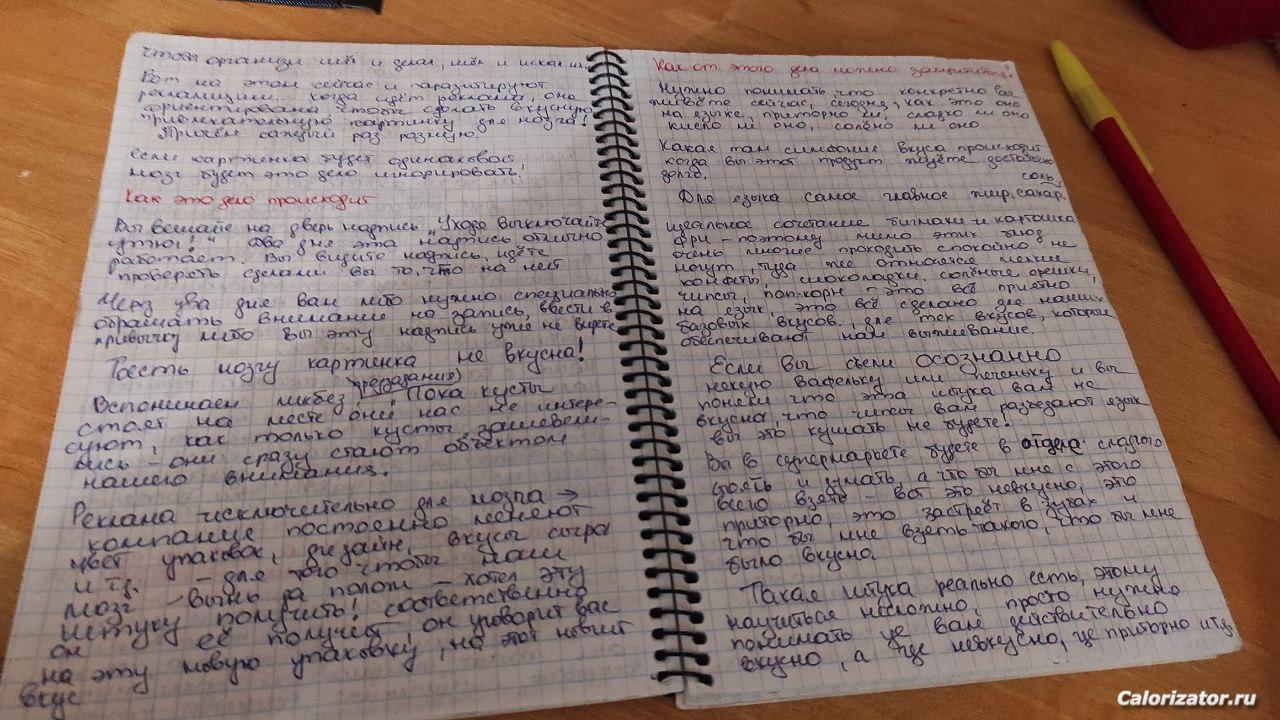 чтобы организм шёл и делал, шёл и искал их.
Вот на этом сейчас и паразитируют
рекламщики. Когда идёт реклама, она
ориентирована чтобы сделать вкусную
привлекательную картинку для мозга!
Причём каждый раз разную.
если картинка будет одинаковая,
мозг будет это дело игнорировать!
Как это дело происходит
Вы вешаете на дверь надпись "Уходя выключайте
утюг!" Два дня эта надпись отлично
работает. Вы видите надпись, идёте
проверять сделали вы то, что на ней
Через два дня вам либо нужно специально
обращать внимание на запись, ввести в
привычку либо вы эту надпись уже не видите
Тоесть мозгу картинка не вкусна!
Вспоминаем ликбез "Пока кусты
стоят на месте они нас не интере-
суют, как только кусты зашевели-
лись - они сразу стают объектом
нашего внимания.
Реклама исключительно для мозга →
компании постоенно меняют
цвет упаковок, дизайн, вкусы сыра
и тд. - для того чтобы наш
мозг - вынь да полож - хотел эту
штуку получить! соответственно
он её получит, он уговорит вас
на эту новую упаковку, на этот новый
вкус
Как от этого дела можно защититься?
Нужно понимать, что конкретно вы
жуёте сейчас, сегодня, как это оно
на языке, приторно ли, сладко ли оно
кисло ли оно, солёно ли оно
Какая там симфония вкуса происходит
когда вы этот продукт жуёте достаточно
долго.
соль,
Для языка самое главное жир, сахар.
идеальное сочетание бигмаки и картошка
фри - поэтому мимо этих блюд
очень многие проходить спокойно не
могут, туда же относятся мелкие
конфеты, шоколадки, солёные орешки,
чипсы, поп-корн - это всё приятно
на язык, это всё сделано для наших
базовых вкусов, для тех вкусов, которые
обеспечивают нам выживание.
Если Вы съели осознанно
некую вафельку или печеньку и вы
поняли что эта штука вам не
вкусна, что чипсы вам разъедают язык
вы это кушать не будете!
Вы в супермаркете будете в отделе сладкого
стоять и думать, а что бы мне с этого
всего взять - вот это невкусно, это
приторно, это застреёт в зубах и
что бы мне взять такого, что бы мне
было вкусно.
Такая штука реально есть, этому
научиться несложно, просто нужно
понимать где вам действительно
вкусно, а где невкусно, где приторно и тд.
Calorizator.ru